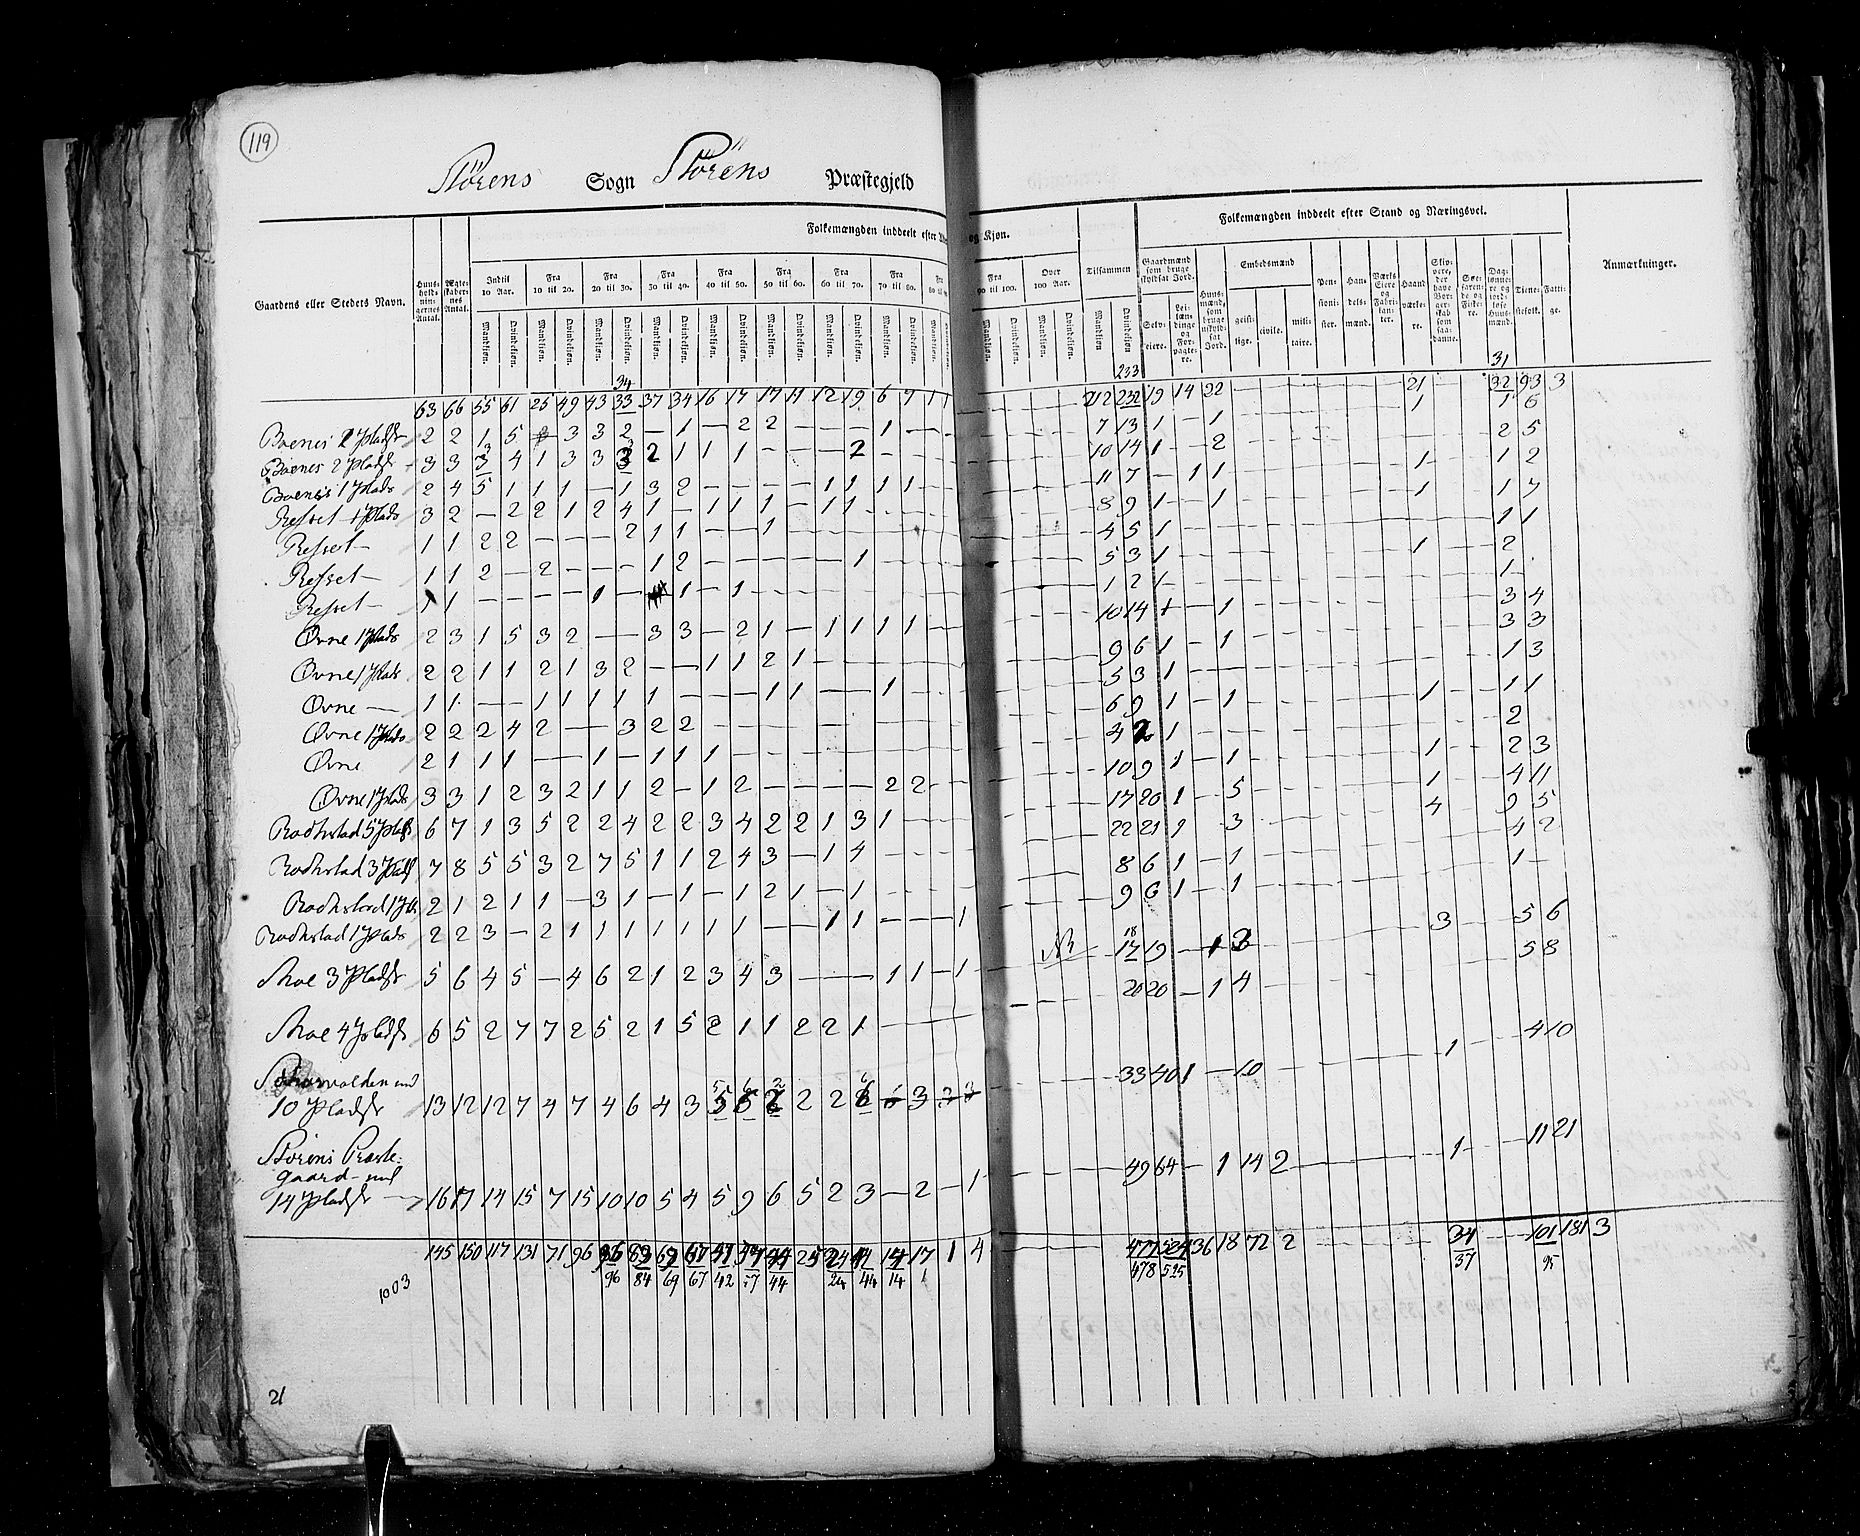 119
Störens Sogn Störens Præstegjeld
Gaardens eller Stedets Navn.
Huus-hold-nin-gernes Antal.
Ægte-skaber-nes Antal.
Folkemængden inddeelt efter og Kjøn.
Indtil 10 Aar.
Fra 10 til 20.
Fra 20 til 30.
Fra 30 til 40.
Fra 40 til 50.
Fra 50 til 60.
Fra 60 til 70.
Fra 70 til 80.
Fra
90 til 100.
Over 100 Aar.
Mandkjøn. Qvindekjøn.
Tilsammen
Mandkjøn Qvindekjøn
Folkemængden inddeelt efter Stand og Næringsvei.
Gaardmænd som bruge skyldsat Jord.
Selv-eiere.
Lei-læn-dinge og For-pagte-re.
Huus-mænd, som bruge uskyld-sat Jord.
Embedsmænd
geist-lige.
civile.
mili-taire.
Pen-sioni-ster.
Han-dels-mænd.
Værks Eiere og Fabri-kan-ter.
Haand værke-re.
Skip-pere, der have Bor-ger-skab som saa-danne.
Søe-faren-de og Fiske-re.
Dag-lønne-re og jord-løse Huus-mænd.
Tiene-stefolk.
Fatti-ge.
Anmærkninger.
34 233 31
63 66 55 61 25 49 43 33 37 34 16 17 17 11 12 19 6 7 1 1 — — — — 212 232 19 14 22 — — — — — — 21 — — 32 93 3
Boenes 2 Pladse 2 2 1 5 — 3 3 2 — 1 — 2 2 — — — 1 — 7 13 1 — 1 1 1 6
Boenes 2 Pladse 3 3 3 4 1 3 3 3 2 1 1 1 — — — 2 — 10 14 1 — 2 2 5
Boenes 1 Plads 2 4 5 1 1 1 — 1 3 2 — — — — 1 1 1 1 11 7 — 1 1 1 1 2
Resset 1 Plads 3 2 — 2 2 1 2 4 1 — 1 1 1 — 1 1 8 9 1 — 1 1 1 7
Resset — 1 1 2 2 — — — 2 1 1 — — 1 4 5 1 1 1
Resset — 1 1 2 — 2 — — — 1 2 — — — — — 1 5 3 1 1 2
Resset — 1 1 — — — — 1 — 1 — 1 1 2 1 1
Øvne 1 Plads 2 3 1 5 3 2 — — 3 3 — 2 1 — 1 1 1 1 10 14 1 — 1 3 4
Øvne 1 Plads 2 2 1 1 2 1 3 2 — — 1 1 2 1 9 6 1 — 1 3 3
Øvne — 1 1 — — 1 1 1 1 1 — — — 1 1 — — 1 5 3 1 1 3
Øvne 1 Plads 2 2 2 4 2 — — 3 2 2 6 9 1 — 1 1 1 1
Øvne 2 1 1 1 — — 1 — 1 1 1 4 2 1 2
Øvne 1 Plads 3 3 1 2 3 2 1 1 2 — 1 2 — — — — 2 2 10 9 1 — 1 1 2 3
Rodhstad 5 Pladse 6 7 1 3 5 2 2 4 2 2 3 4 2 2 1 3 1 17 20 1 — 5 1 4 11
Rodhstad 3 Pladse 7 8 5 5 3 2 7 5 1 1 2 4 3 — 1 4 22 21 1 — 3 4 9 5
Rodhstad 1 Plads 2 1 2 1 1 — 3 1 — 1 — 1 2 1 — 1 8 6 1 — 1 4 2
Rodhstad 1 Plads 2 2 3 — 2 1 1 1 1 1 1 1 — — 1 1 — — — 1 9 6 1 — 1 1 —
Moe 3 Pladse 5 6 4 5 — 4 6 2 1 2 3 4 3 — — — 1 1 — 1 18 17 19 — 1 3 3 5 6
Moe 4 Pladse 6 5 2 7 7 2 5 2 1 5 2 1 1 2 2 1 20 20 — 1 4 5 8
10 Pladse 13 12 12 7 4 7 4 6 4 3 5 6 2 2 2 6 6 3 2 3 33 40 1 — 10 1 4 10
Störens Præste-
gaard med
14 Pladse 16 17 14 15 7 15 10 10 5 4 5 9 6 5 2 3 — 2 — 1 49 64 — 1 14 2 1 11 21
145 150 117 131 71 96 96 83 69 67 41 57 44 25 24 44 14 17 1 4 477 524 36 18 72 2 34 101 181 3
96 84 69 67 42 57 44 24 44 14 478 525 37 95
1003
21